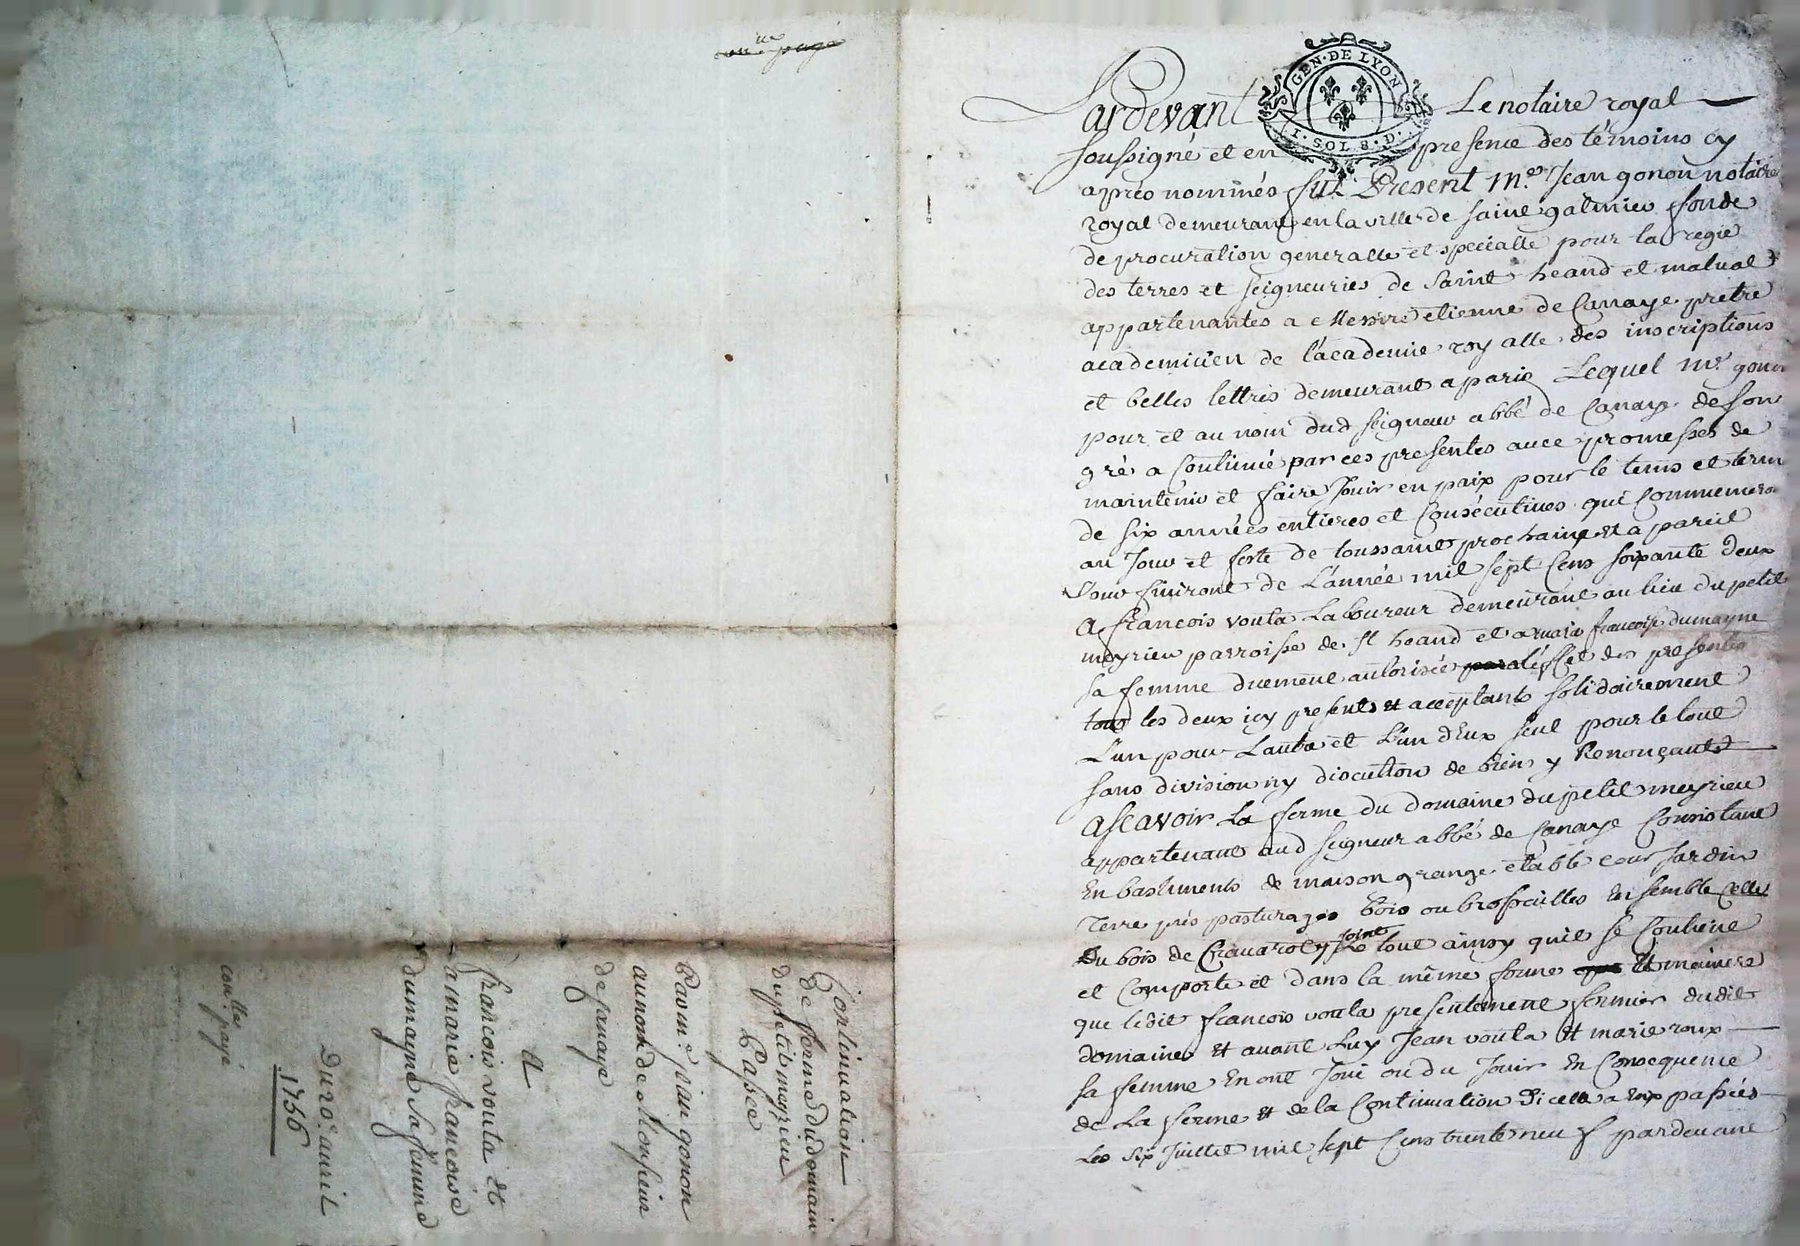 GEN · DE LYON
1 · SOL 8 · D ·
Pardevant Le notaire royal
soussigné et en presence des témoins cy
apres nommés fut Present Me. Jean gonon notaire
royal demeurant en la ville de saint galmier fondé
de procuration generalle et specialle pour la regie
des terres et seigneuries de saint heand et malval
appartenantes a Messire etienne de Canaye pretre
academicien de l'academie royalle des inscriptions
et belles lettres demeurant a paris Lequel Me. gonon
pour et au nom dud seigneur abbé de Canaye de son
gré a Continué par ces presentes avec promesses de
maintenir et faire Jouir en paix pour le tems et term
de six années entieres et Consécutives qui Commenceron
au Jour et feste de toussaint prochaine et a pareil
Jour finiront de L'année mil sept Cens soixante deux
A francois vouta Laboureur demeurant au lieu du petit
meyrieu parroisse de st heand et a marie francoise dumayne
sa femme duement autorisée a l'effet des presentes
tous les deux icy presents et acceptants solidairement
L'un pour L'autre et L'un d'Eux seul pour le tout
sans division ny discution de biens y Renonçants
Ascavoir La ferme du domaine du petit meyrieu
appartenant aud seigneur abbé de Canaye Consistant
En bastiments de maison grange étable cour Jardin
Terre prés pasturages bois ou brossailles En semble Celle
Du bois de Cravarol y joint Le tout ainsy quil se Contient
et Comporte et dans la même forme Et maniere
que ledit francois vouta presentement fermier dudit
domaine et avant Luy Jean vouta Et marie roux
sa femme En ont Joui ou du Jouir En Consequence
de La ferme Et de la Continuation d'icelle a Eux passées
Les six Juillet mil sept Cens trente neuf pardevant
Continuation
de ferme du domaine
du petit meyrieu
Passée
Par me. jean gonon
au nom de Monsieur
de Canaye
A
francois vouta et
a marie francoise
dumayne sa femme
Du 10e. avril
1756
conlle. payé